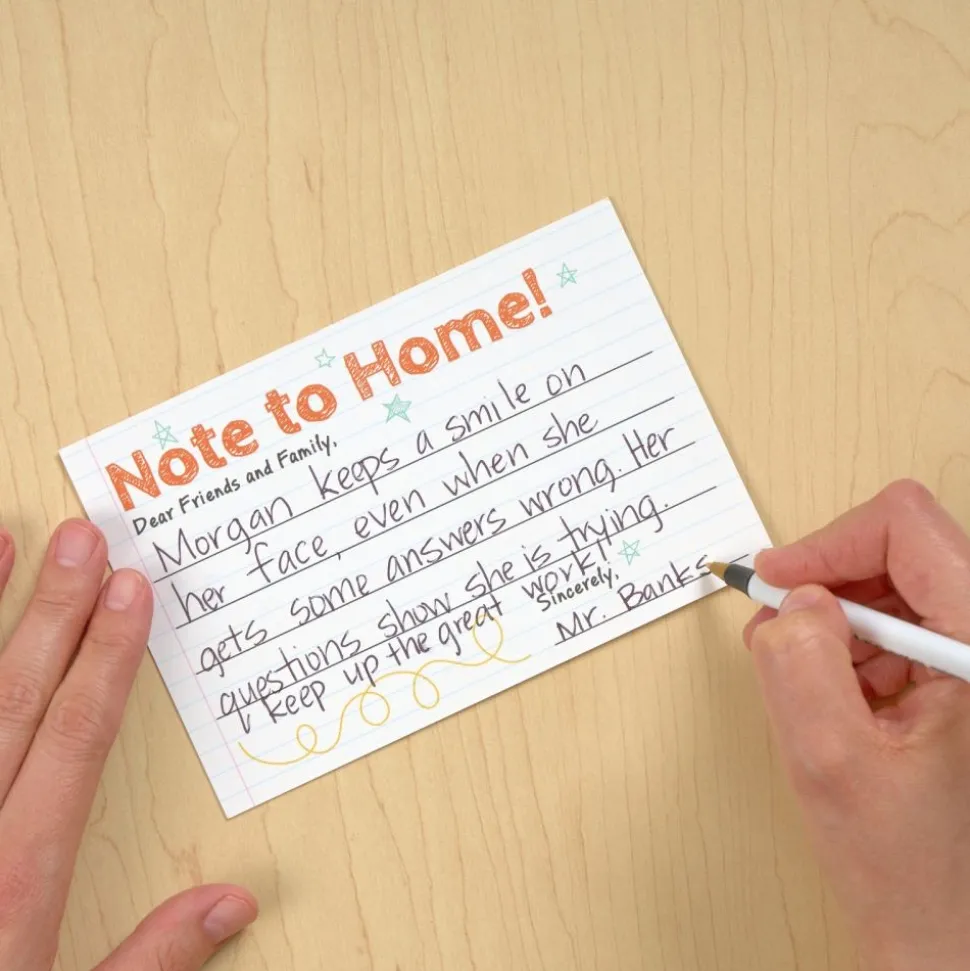 Note to Home!
Dear Friends and Family,
Morgan keeps a smile on
her face, even when she
gets some answers wrong. Her
questions show she is trying.
keep up the great work!
Sincerely,
Mr. Banks